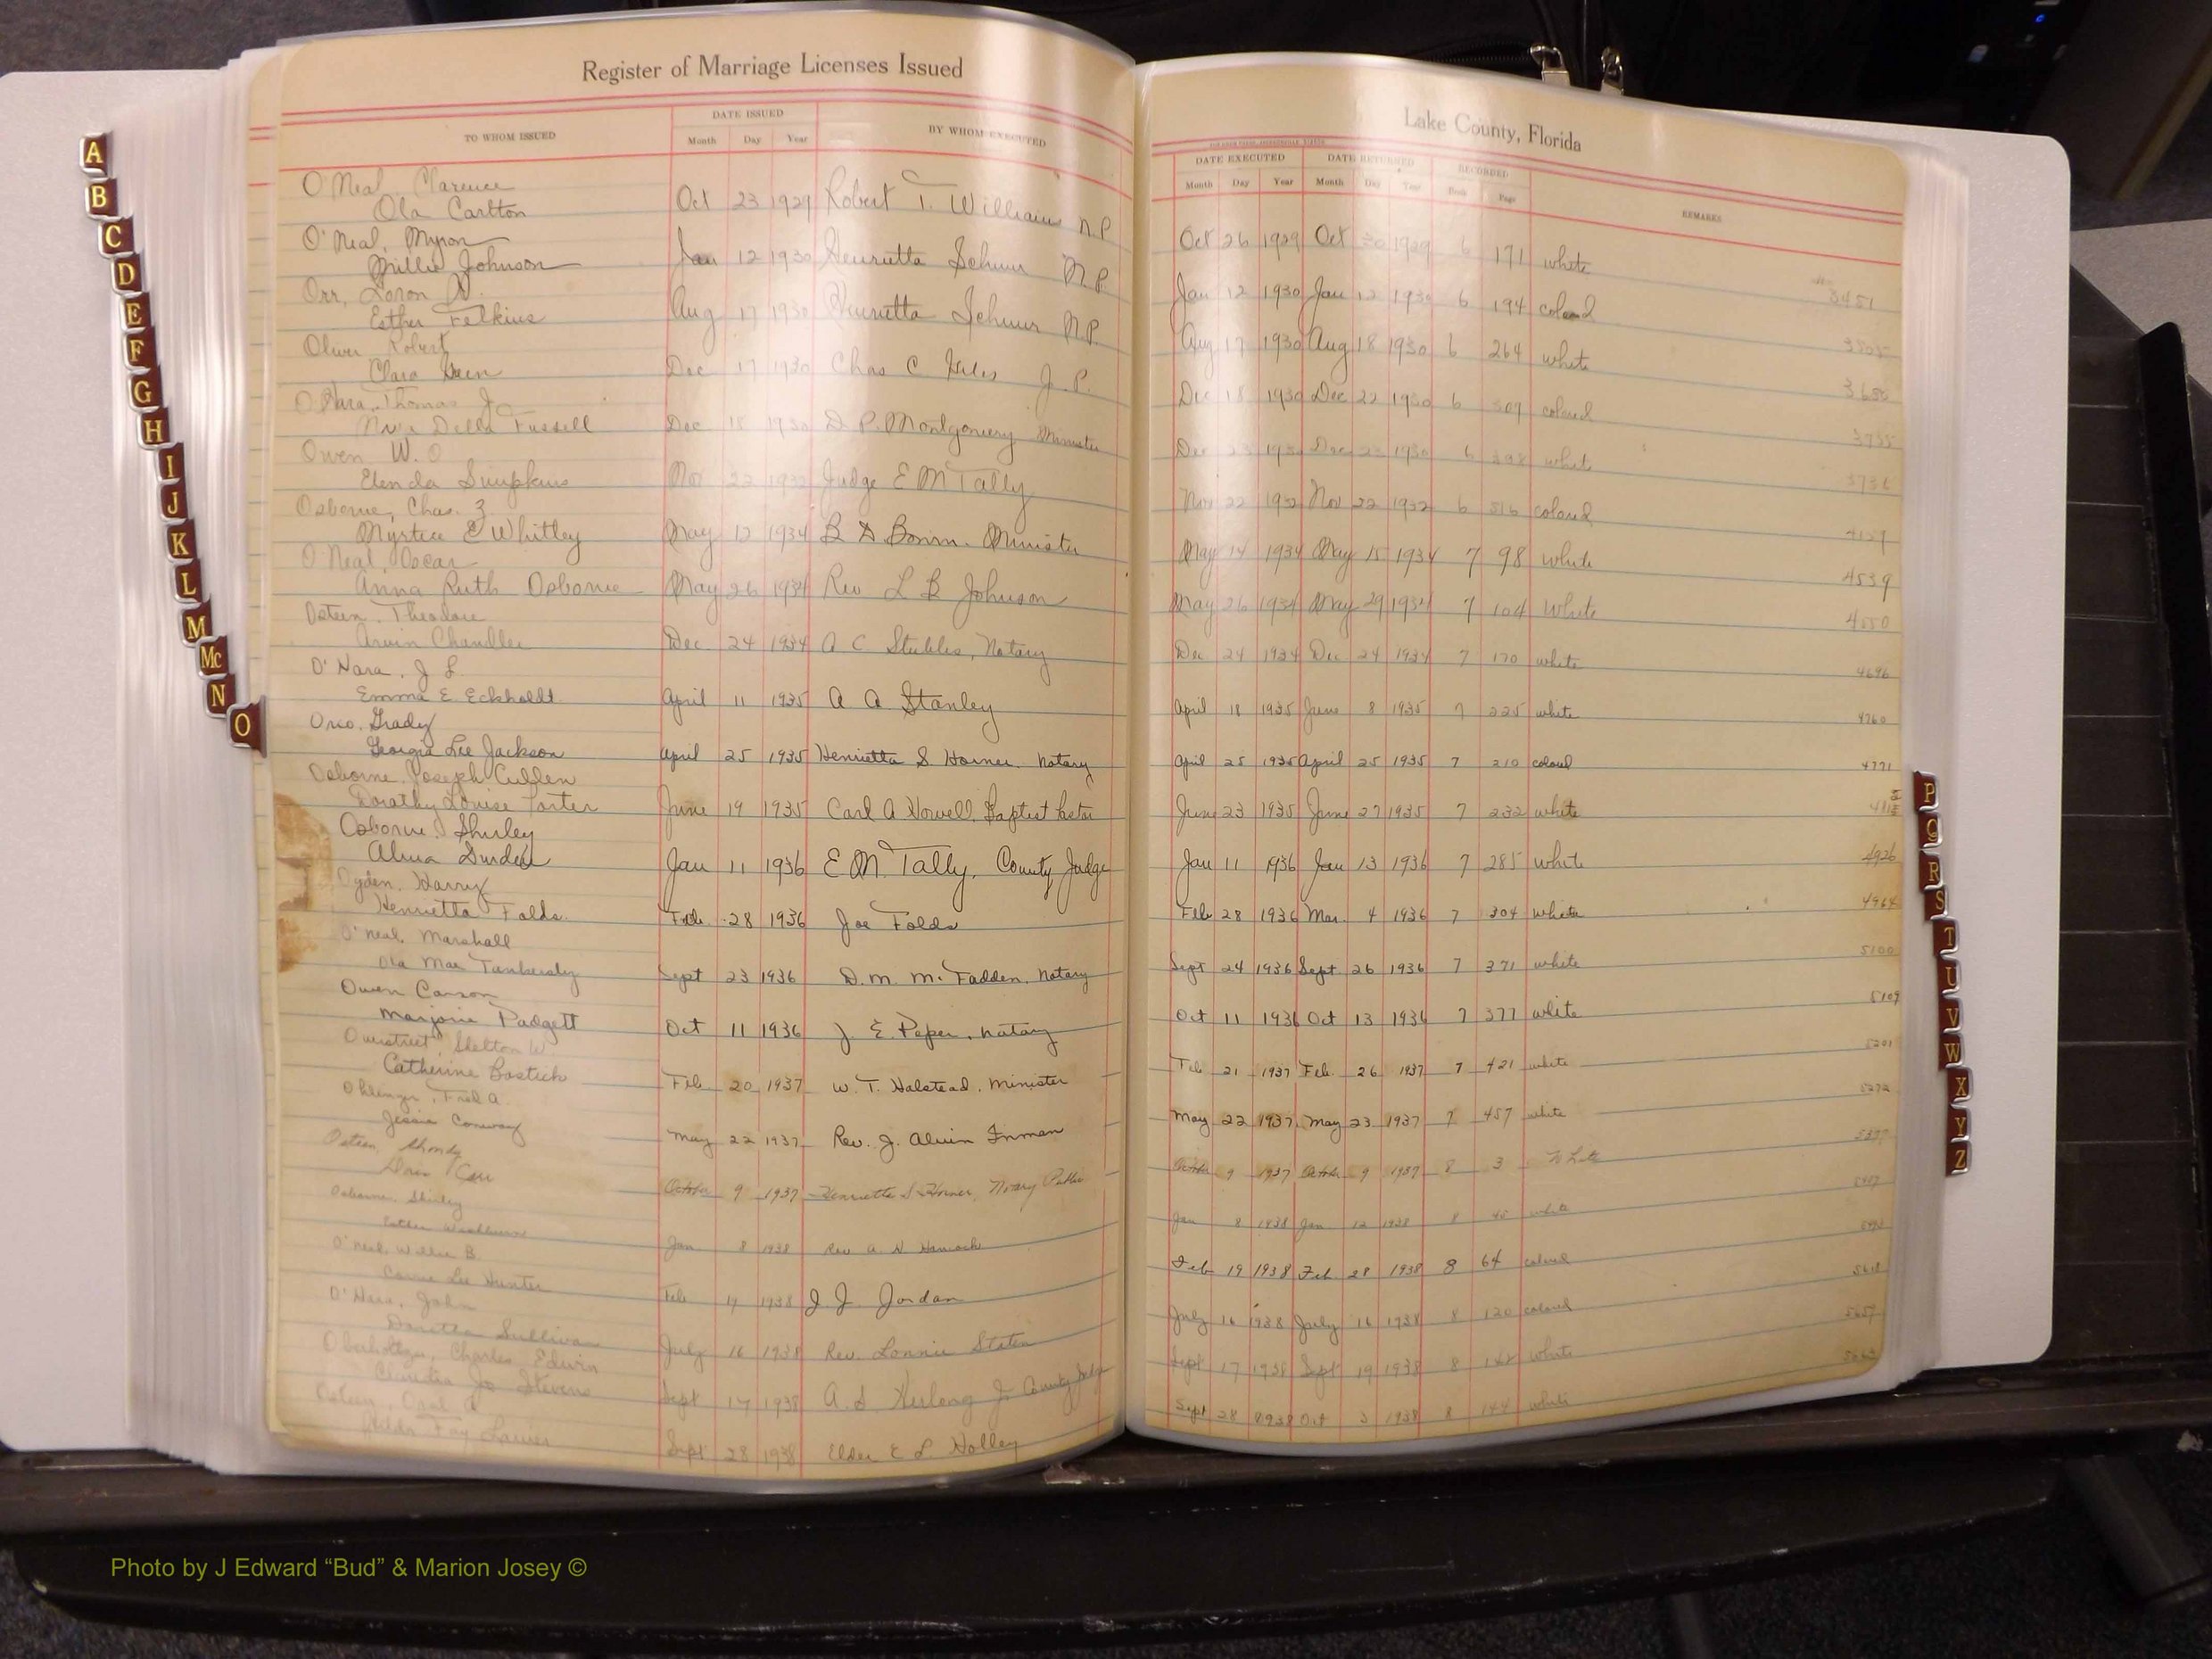 Register of Marriage Licenses Issued
TO WHOM ISSUED DATE ISSUED BY WHOM EXECUTED
Month Day Year
O'Neal, Clarence
Ola Carlton Oct 23 1929 Robert T. Williams N.P.
O'Neal, Myron
Millie Johnson Jan 12 1930 Henrietta Schuur N.P.
Orr, Loron
Esther Felkins Aug 17 1930 Henrietta Schuur N.P.
Oliver Robert
Clara Dec 17 1930 Chas C J.P.
O'Hara, Thomas J.
Della Fussell Dec 18 1930 D. P. Montgomery Minister
Owen W. O
Elenda Simpkins Nov 22 1932 Judge E M Tally
Osborne, Chas. Z.
Myrtice E Whitley May 12 1934 B D Minister
O'Neal, Oscar
Anna Ruth Osborne May 26 1934 Rev L B Johnson
Osteen, Theodore
Chandler Dec 24 1934 A C Stubbs, Notary
O'Hara, J L
Emma E Eckholdt April 11 1935 A A Stanley
Grady
Georgia Lee Jackson April 25 1935 Henrietta S. Horner Notary
Osborne Joseph Cullen
Dorathy Louise June 19 1935 Carl A Howell, Baptist Pastor
Osborne, Shirley
Alma Jan 11 1936 E M. Tally, County Judge
Ogden, Harry
Henrietta Folds Feb. 28 1936 Joe Folds
O'Neal, Marshall
Ola Mae Tankersley Sept 23 1936 D. M. McFadden, Notary
Owen Carson
Marjorie Padgett Oct 11 1936 J. E. Peper, Notary
Overstreet, Shelton W.
Catherine Bostick Feb. 20 1937 W. T. Halstead, Minister
Fred A.
Jessie Conway May 22 1937 Rev. J. Alvin Inman
Osteen,
Carr October 9 1937 Henrietta S Horner, Notary Public
Osborne Shirley
Esther Washburn Jan 8 1938 Rev A N Hancock
O'Neal, Willie B.
Carrie Lee Hunter Feb 1938 J. J. Jordan
O'Hara, John
Sullivan July 16 1938 Rev. Lonnie Staten
Oberholtzer, Charles Edwin
Claudia Jo Stevens Sept 17 1938 A. S. Herlong Jr County Judge
Osteen,
Fay Sept 28 1938 Elder E L Holley
Lake County, Florida
DATE EXECUTED DATE RETURNED RECORDED REMARKS
Month Day Year Month Day Year Book Page
Oct 26 1929 Oct 30 1929 6 171 white
3451
Jan 12 1930 Jan 12 1930 6 194 colored
Aug 17 1930 Aug 18 1930 6 264 white
Dec 18 1930 Dec 22 1930 6 309 colored
3735
Dec 23 1930 Dec 23 1930 6 308 white
3736
Nov 22 1932 Nov 22 1932 6 516 colored
May 14 1934 May 15 1934 7 98 white
4539
May 26 1934 May 29 1934 7 104 White
4550
Dec 24 1934 Dec 24 1934 7 170 white
4696
April 18 1935 June 8 1935 7 225 white
4760
April 25 1935 April 25 1935 7 210 colored
4771
June 23 1935 June 27 1935 7 232 white
Jan 11 1936 Jan 13 1936 7 285 white
4926
Feb 28 1936 Mar. 4 1936 7 304 white
4964
Sept 24 1936 Sept 26 1936 7 371 white
5100
Oct 11 1936 Oct 13 1936 7 377 white
5109
Feb 21 1937 Feb. 26 1937 7 421 white
5201
May 22 1937 May 23 1937 7 457 white
5272
October 9 1937 October 9 1937 8 3 White
Jan 8 1938 Jan. 12 1938 8 white
Feb 19 1938 Feb. 28 1938 8 64 colored
July 16 1938 July 16 1938 8 120 colored
Sept 17 1938 Sept 19 1938 8 142 white
Sept 28 1938 Oct 3 1938 8 144 white
A
B
C
D
E
F
G
H
I
J
K
L
M
Mc
N
O
P
Q
R
S
T
U
V
W
X
Y
Z
Photo by J Edward “Bud” & Marion Josey ©